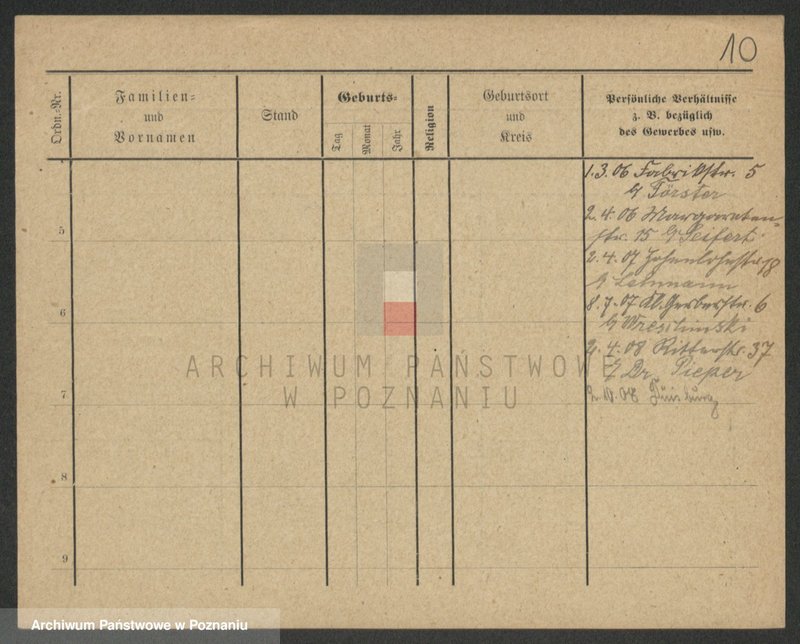 10
Ordn.-Nr.
Familien-
und
Vornamen
Stand
Geburts-
Tag
Monat
Jahr
Religion
Geburtsort
und
Kreis
Persönliche Verhältnisse
z. B. bezüglich
des Gewerbes usw.
1.3.06 Fabrikstr. 5
b/ Förster
2.4.06 Margareten-
str. 15 b/ Seifert
2.4.07 Hohenlohestr. 18
b/ Lehmann
8.7.07 Kl. Gerberstr. 6
b/ Wresilinski
2.4.08 Ritterstr. 37
b/ Dr. Pieper
2.10.08 Duisburg
5
6
7
8
9
ARCHIWUM PAŃSTWOWE
W POZNANIU
Archiwum Państwowe w Poznaniu